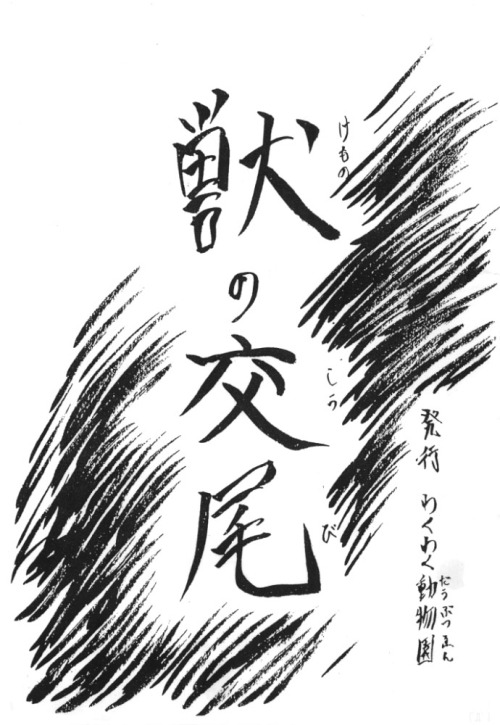 獣の交尾
けもの
こうび
発行 わくわく動物園
どうぶつえん